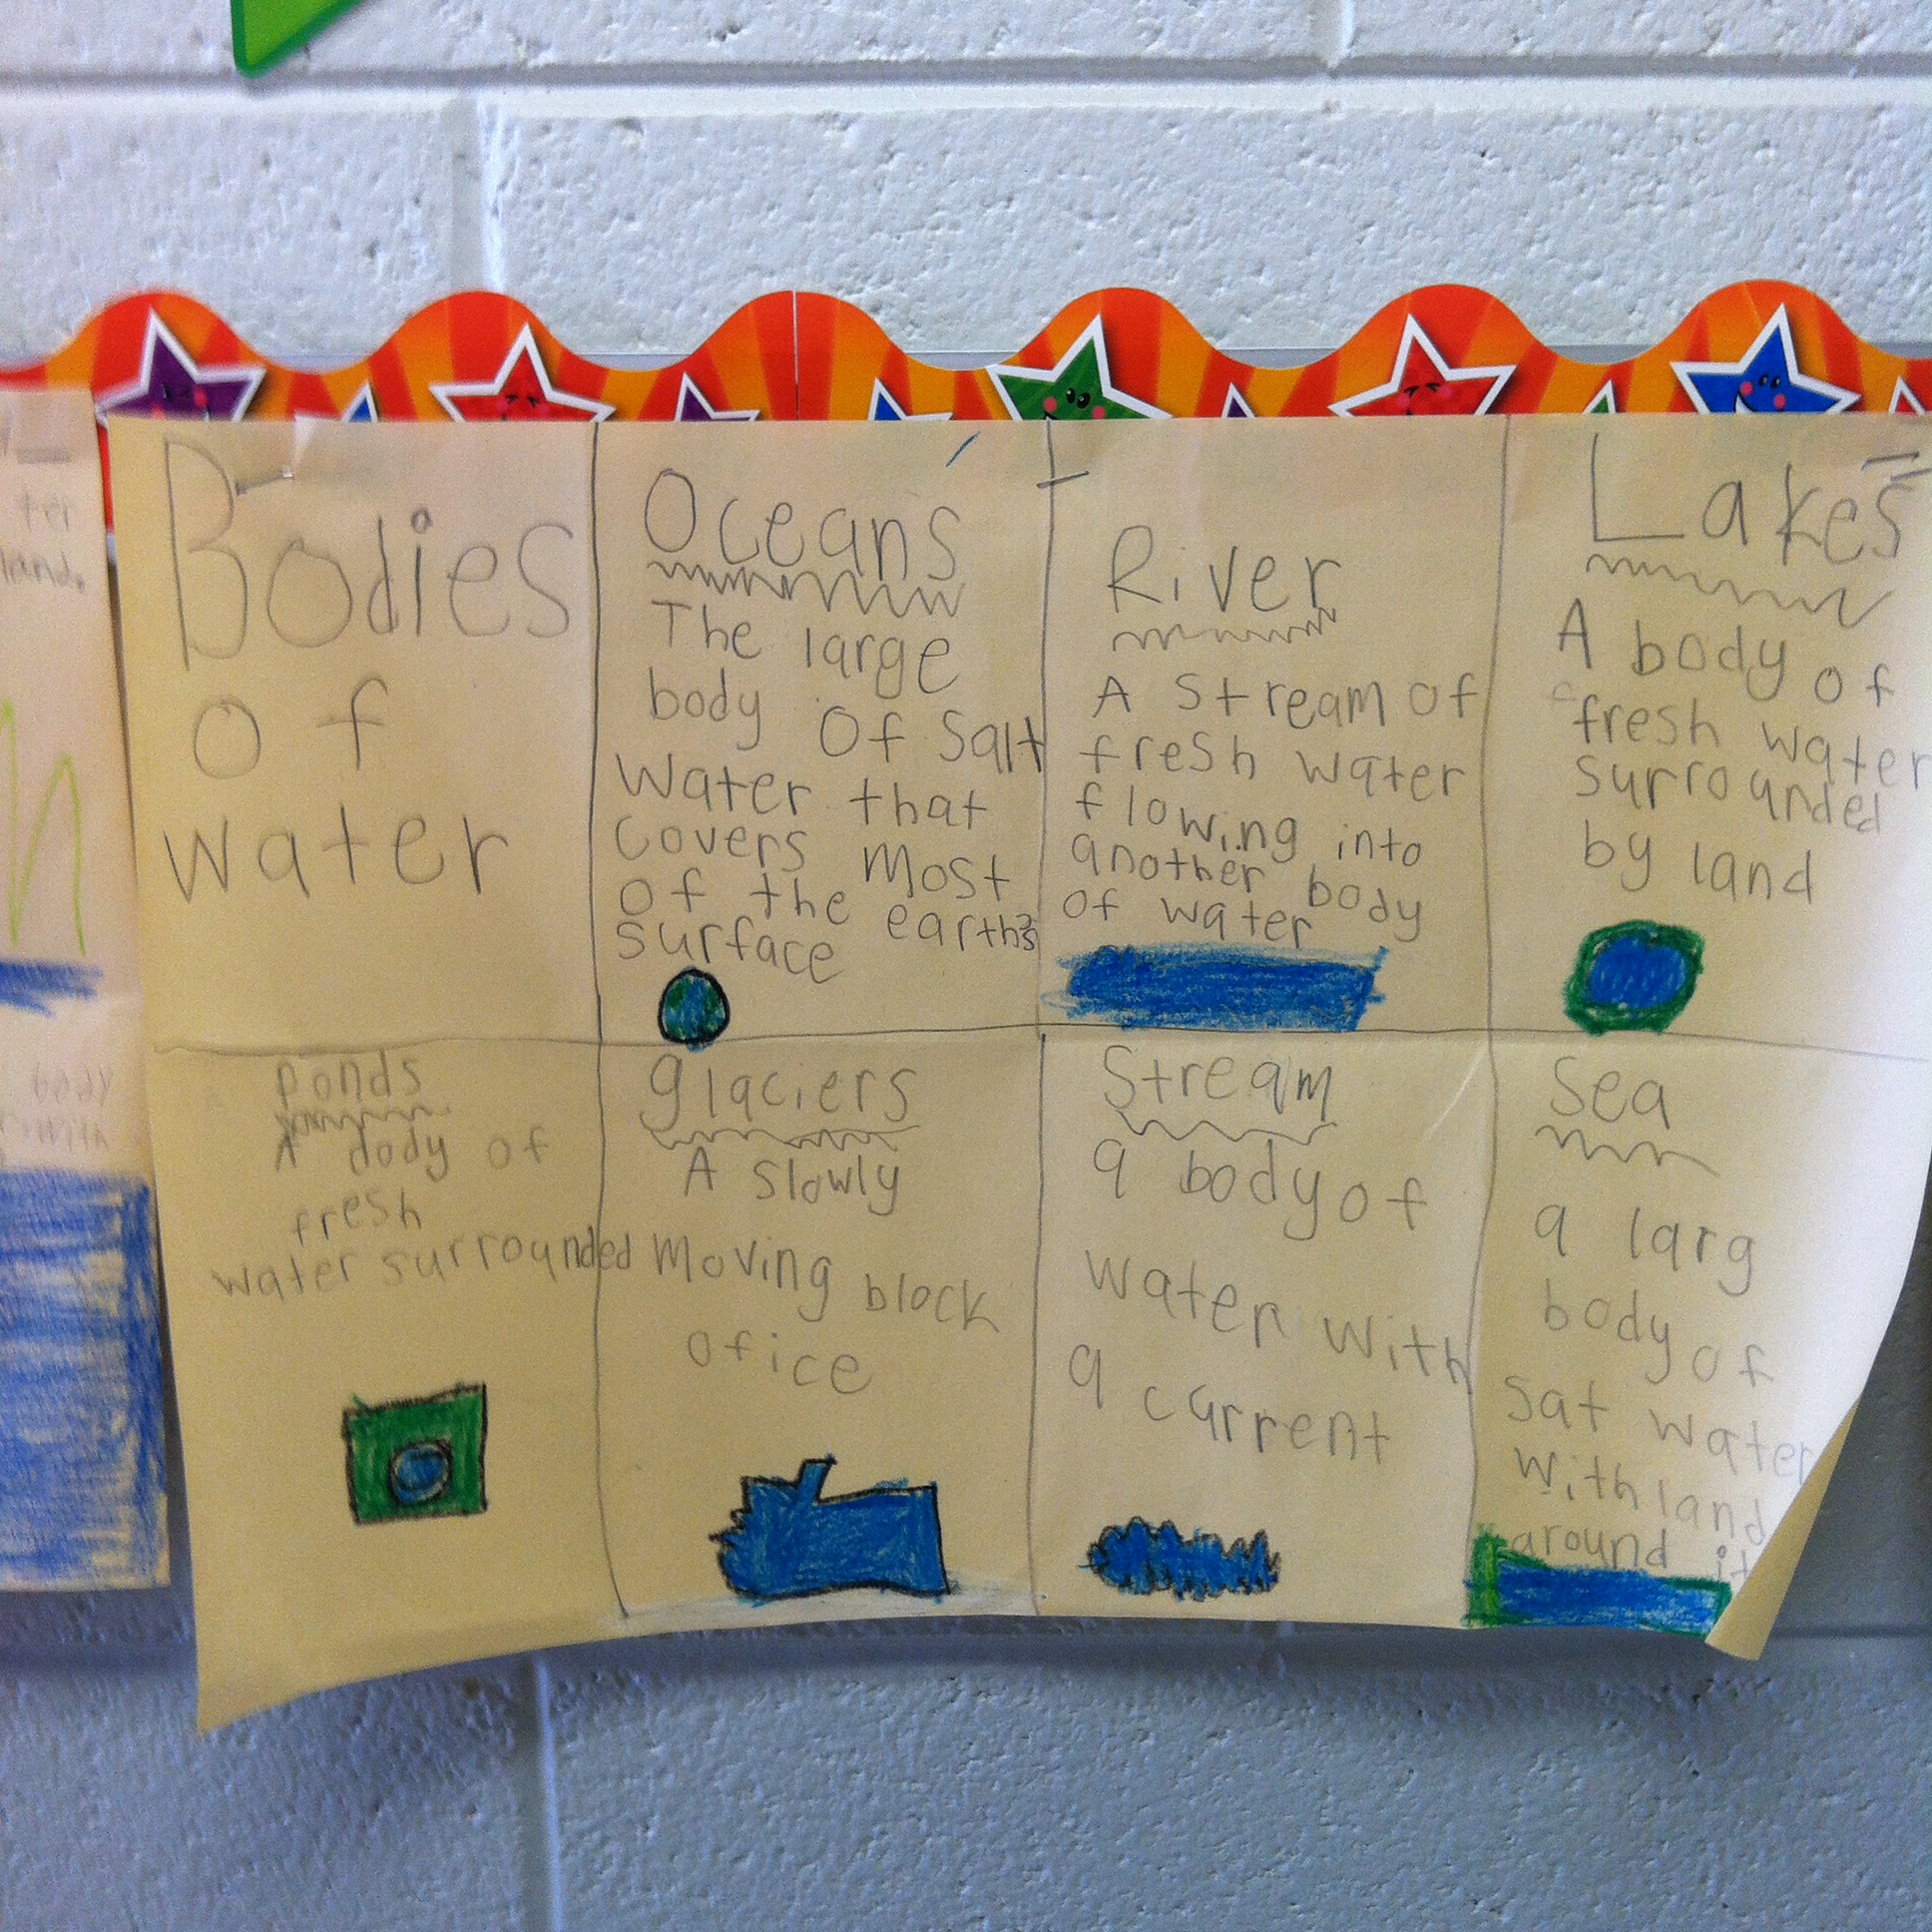 ter
land.
body
with
Bodies
of
water
Oceans
The large
body of salt
water that
covers most
of the earth's
surface
River
A stream of
fresh water
flowing into
another body
of water
Lakes
A body of
fresh water
surrounded
by land
Ponds
A dody of
fresh
water surrounded
glaciers
A slowly
moving block
of ice
Stream
a body of
water with
a current
Sea
a larg
body of
sat water
with land
around it